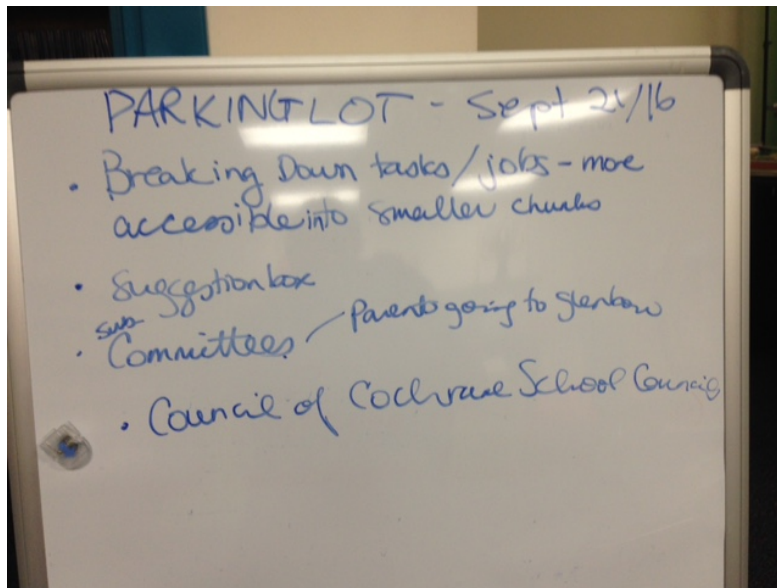 PARKING LOT - Sept 21/16
• Breaking Down tasks/jobs - more
accessible into smaller chunks
• Suggestion box
sub
• Committees / Parents going to glenbow
• Council of Cochrane School Councils